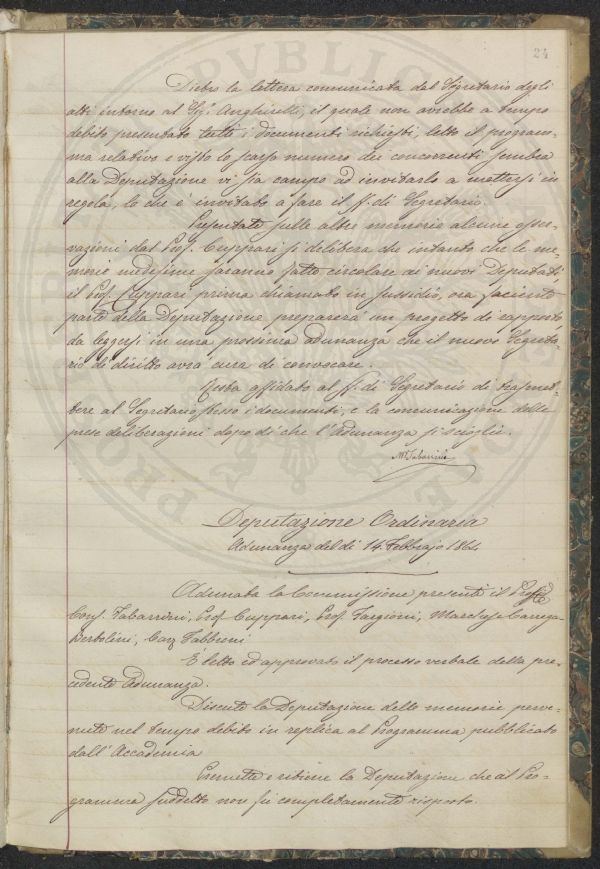 24
Dietro la lettera comunicata dal Segretario degli
atti intorno al Sig.r Anghirelli, il quale non avrebbe a tempo
debito presentato tutti i documenti richiesti, letto il program-
ma relativo e visto lo scarso numero dei concorrenti sembra
alla Deputazione vi sia campo ad invitarlo a mettersi in
regola, lo che è invitato a fare il f. di Segretario.
Presentate sulle altre memorie alcune osser-
vazioni dal Prof. Cuppari si delibera che intanto che le me-
morie medesime saranno fatte circolare ai nuovi Deputati
il Prof. Cuppari prima chiamato in sussidio, ora faciente
parte della Deputazione preparerà un progetto di rapporto
da leggersi in una prossima adunanza che il nuovo Segreta-
rio di diritto avrà cura di convocare.
Resta affidato al f. di Segretario di trasmet-
tere al Segretario stesso i documenti, e la comunicazione delle
prese deliberazioni dopo di che l'Adunanza si scioglie.
M. Tabarrini
Deputazione Ordinaria
Adunanza del dì 14 Febbrajo 1864
Adunata la Commissione presenti il
Cons. Tabarrini, Prof. Cuppari, Prof. Targioni, Marchese Carrega
Bertolini, Cav. Fabbroni
È letto ed approvato il processo verbale della pre-
cedente Adunanza.
Discute la Deputazione delle memorie perve-
nute nel tempo debito in replica al Programma pubblicato
dall'Accademia
Premette e ritiene la Deputazione che al Pro-
gramma suddetto non fu completamente risposto.
PVBLICA